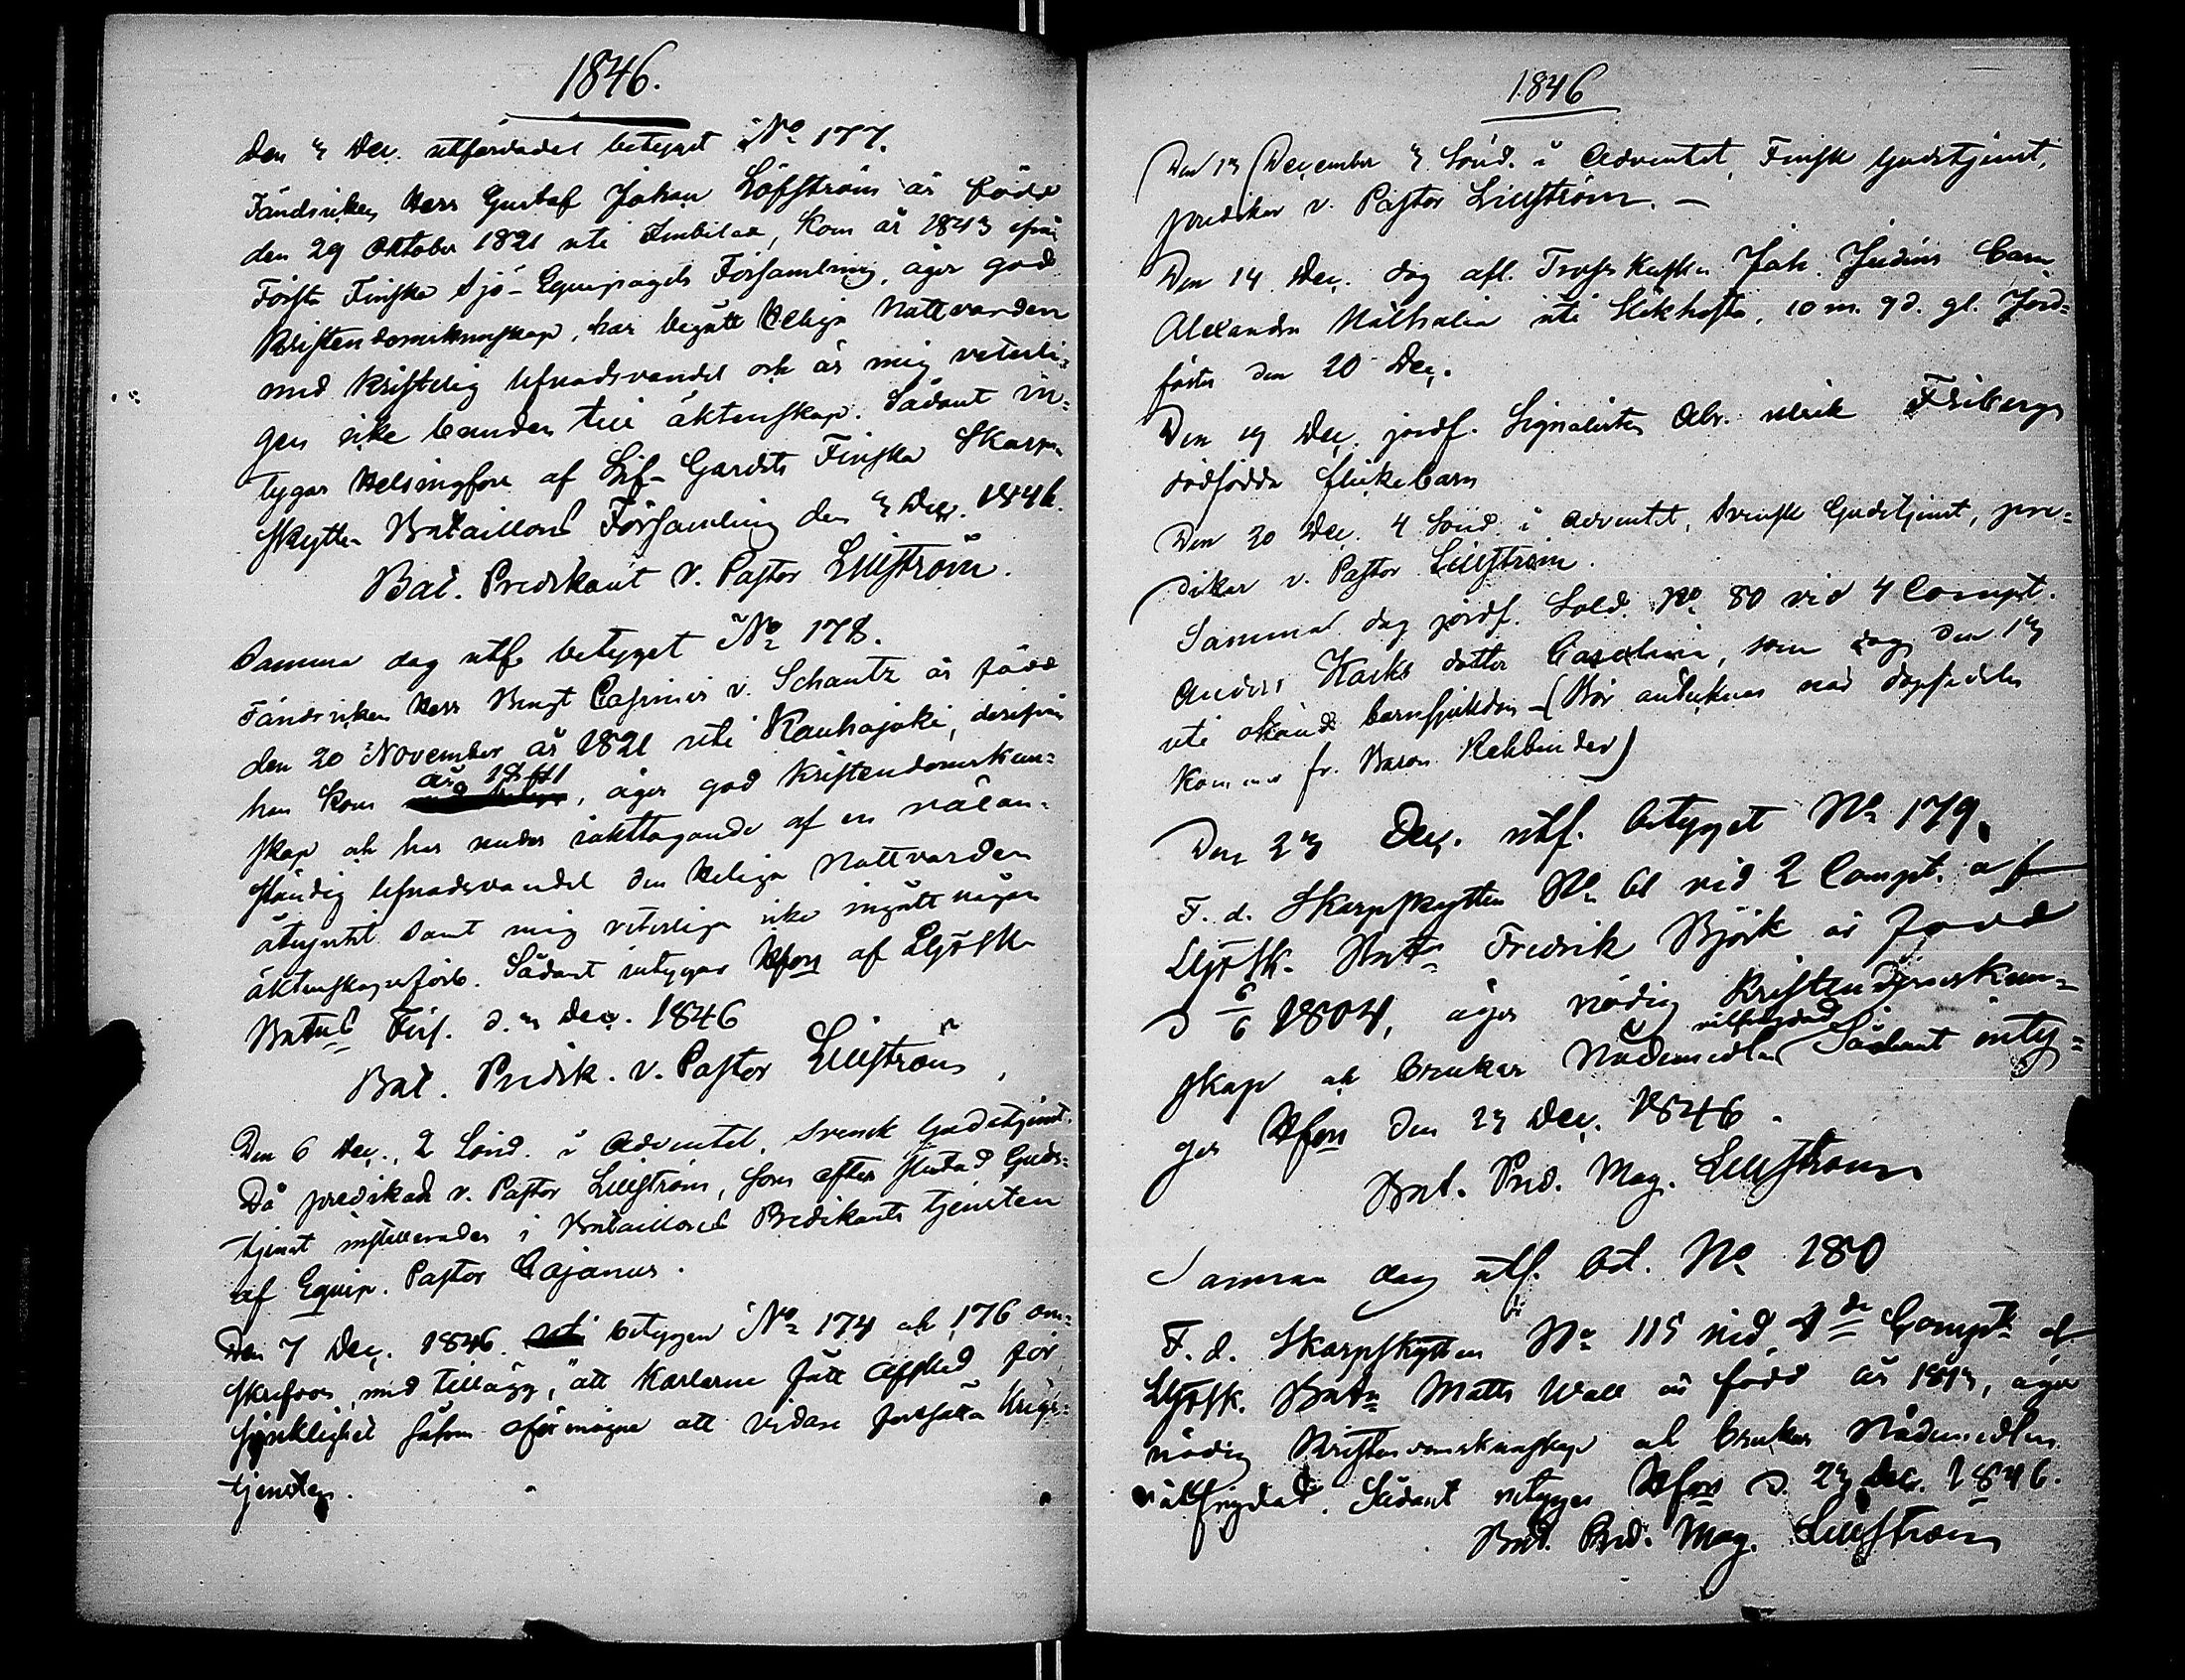 1846.
Den 3 Dec. utfärdades betyget No 177.
Fändriken Herr Gustaf Johan Löfström är född
den 29 Oktober 1821 uti Imbilax, kom år 1843 ifrån
Första Finska Sjö-Equipagets Församling, äger god
Kristendomskunskap, har begått Heliga Nattvarden
med kristelig lefnadsvandel och är mig veterli-
gen icke bunden till äktenskap. Sådant in-
tygar Helsingfors af Lif-Gardets Finska Skarp-
skytte-Bataillons Församling den 3 Dec. 1846.
Bat. Predikant V. Pastor Lillström.
Samma dag utf. betyget No 178.
Fändriken Herr Bengt Casimir v. Schantz är född
den 20 November år 1821 uti Kauhajoki, derifrån
han kom år 1841, äger god kristendomskun-
skap och har under iakttagande af en väl an-
ständig lefnadsvandel den Heliga Nattvarden
åtnjutit samt mig veterliga icke ingått någon
äktenskapsförb. Sådant intygar Hfors af LGFSk
Batns Förs. d. 3 Dec. 1846
Bat. Predik. v. Pastor Lillström,
Den 6 Dec., 2 Sönd. i Adventet, svensk Gudstjenst.
Då predikade v. Pastor Lillström, som efter slutad Guds-
tjenst installerades i Bataillons Predikants tjensten
af Equip. Pastor Cajanus.
Den 7 Dec. 1846. betygen No 174 och 176 om-
skrefvos, med tillägg, "att Karlarne fått Afsked för
sjuklighet såsom oförmögne att vidare fortsätta Krigs-
tjensten.
1846
Den 13 December 3 Sönd. i Adventet, Finsk Gudstjenst,
predikar v. Pastor Lillström. –
Den 14 Dec. dog afl. Tross Kusken Joh. Judins Barn
Alexandra Nathalia uti Slikhosta, 10 m. 9 d. gl. Jord-
fästes den 20 Dec.
Den 19 Dec. jordf. Signalisten Abr. Ulrik Fribergs
dödfödda flickebarn
Den 20 Dec. 4 Sönd. i Adventet, svensk Gudstjenst, pre-
dikar v. Pastor Lillström.
Samma dag jordf. Sold. No 80 vid 4 Compt.
Anders Karks dotter Carolina, som dog den 13
uti okänd barnsjukdom – (Bör antecknas när dopsedeln
kommer fr. Baron Rehbinder)
Den 23 Dec. utf. betyget No 179.
F. d. Skarpskytten No 61 vid 2 Compt. af
LGFSk. Batn Fredrik Björk är född
d 6/6 1804, äger nödig Kristendomskun-
skap och brukar Nådemedlen välfrejdad Sådant inty-
gar Hfors den 23 Dec. 1846.
Bat. Pred. Mag. Lillström
Samma dag utf. bet. No 180
F. d. Skarpskytten No 115 vid Compt af
LGFSk. Batn Matts Wall är född år 1813, äger
nödig Kristendomskunskap och brukar Nådemedlen
välfrejdad. Sådant intygar Hfors d. 23 Dec. 1846.
Bat. Pred. Mag. Lillström